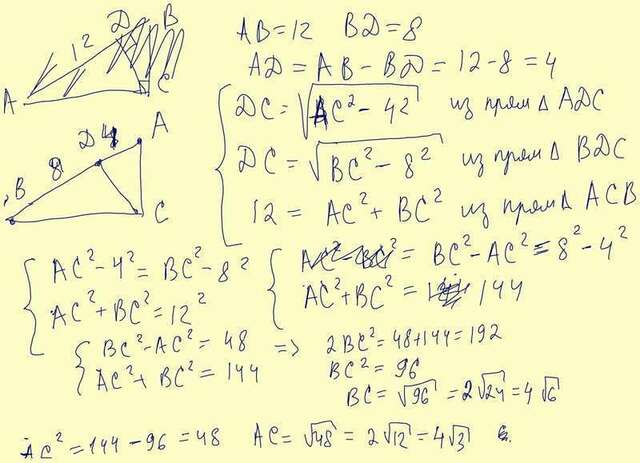 12 D B
A C
A
D 4
8
B
C
AB=12 BD=8
AD=AB-BD=12-8=4
DC=√AC²-4² из прям Δ ADC
DC=√BC²-8² из прям Δ BDC
12=AC²+BC² из прям Δ ACB
AC²-4²=BC²-8²
AC²+BC²=12²
= BC²-AC²=8²-4²
AC²+BC²= 144
BC²-AC²=48 => 2BC²=48+144=192
AC²+BC²=144
BC²=96
BC=√96=2√24=4√6
AC²=144-96=48 AC=√48=2√12=4√3